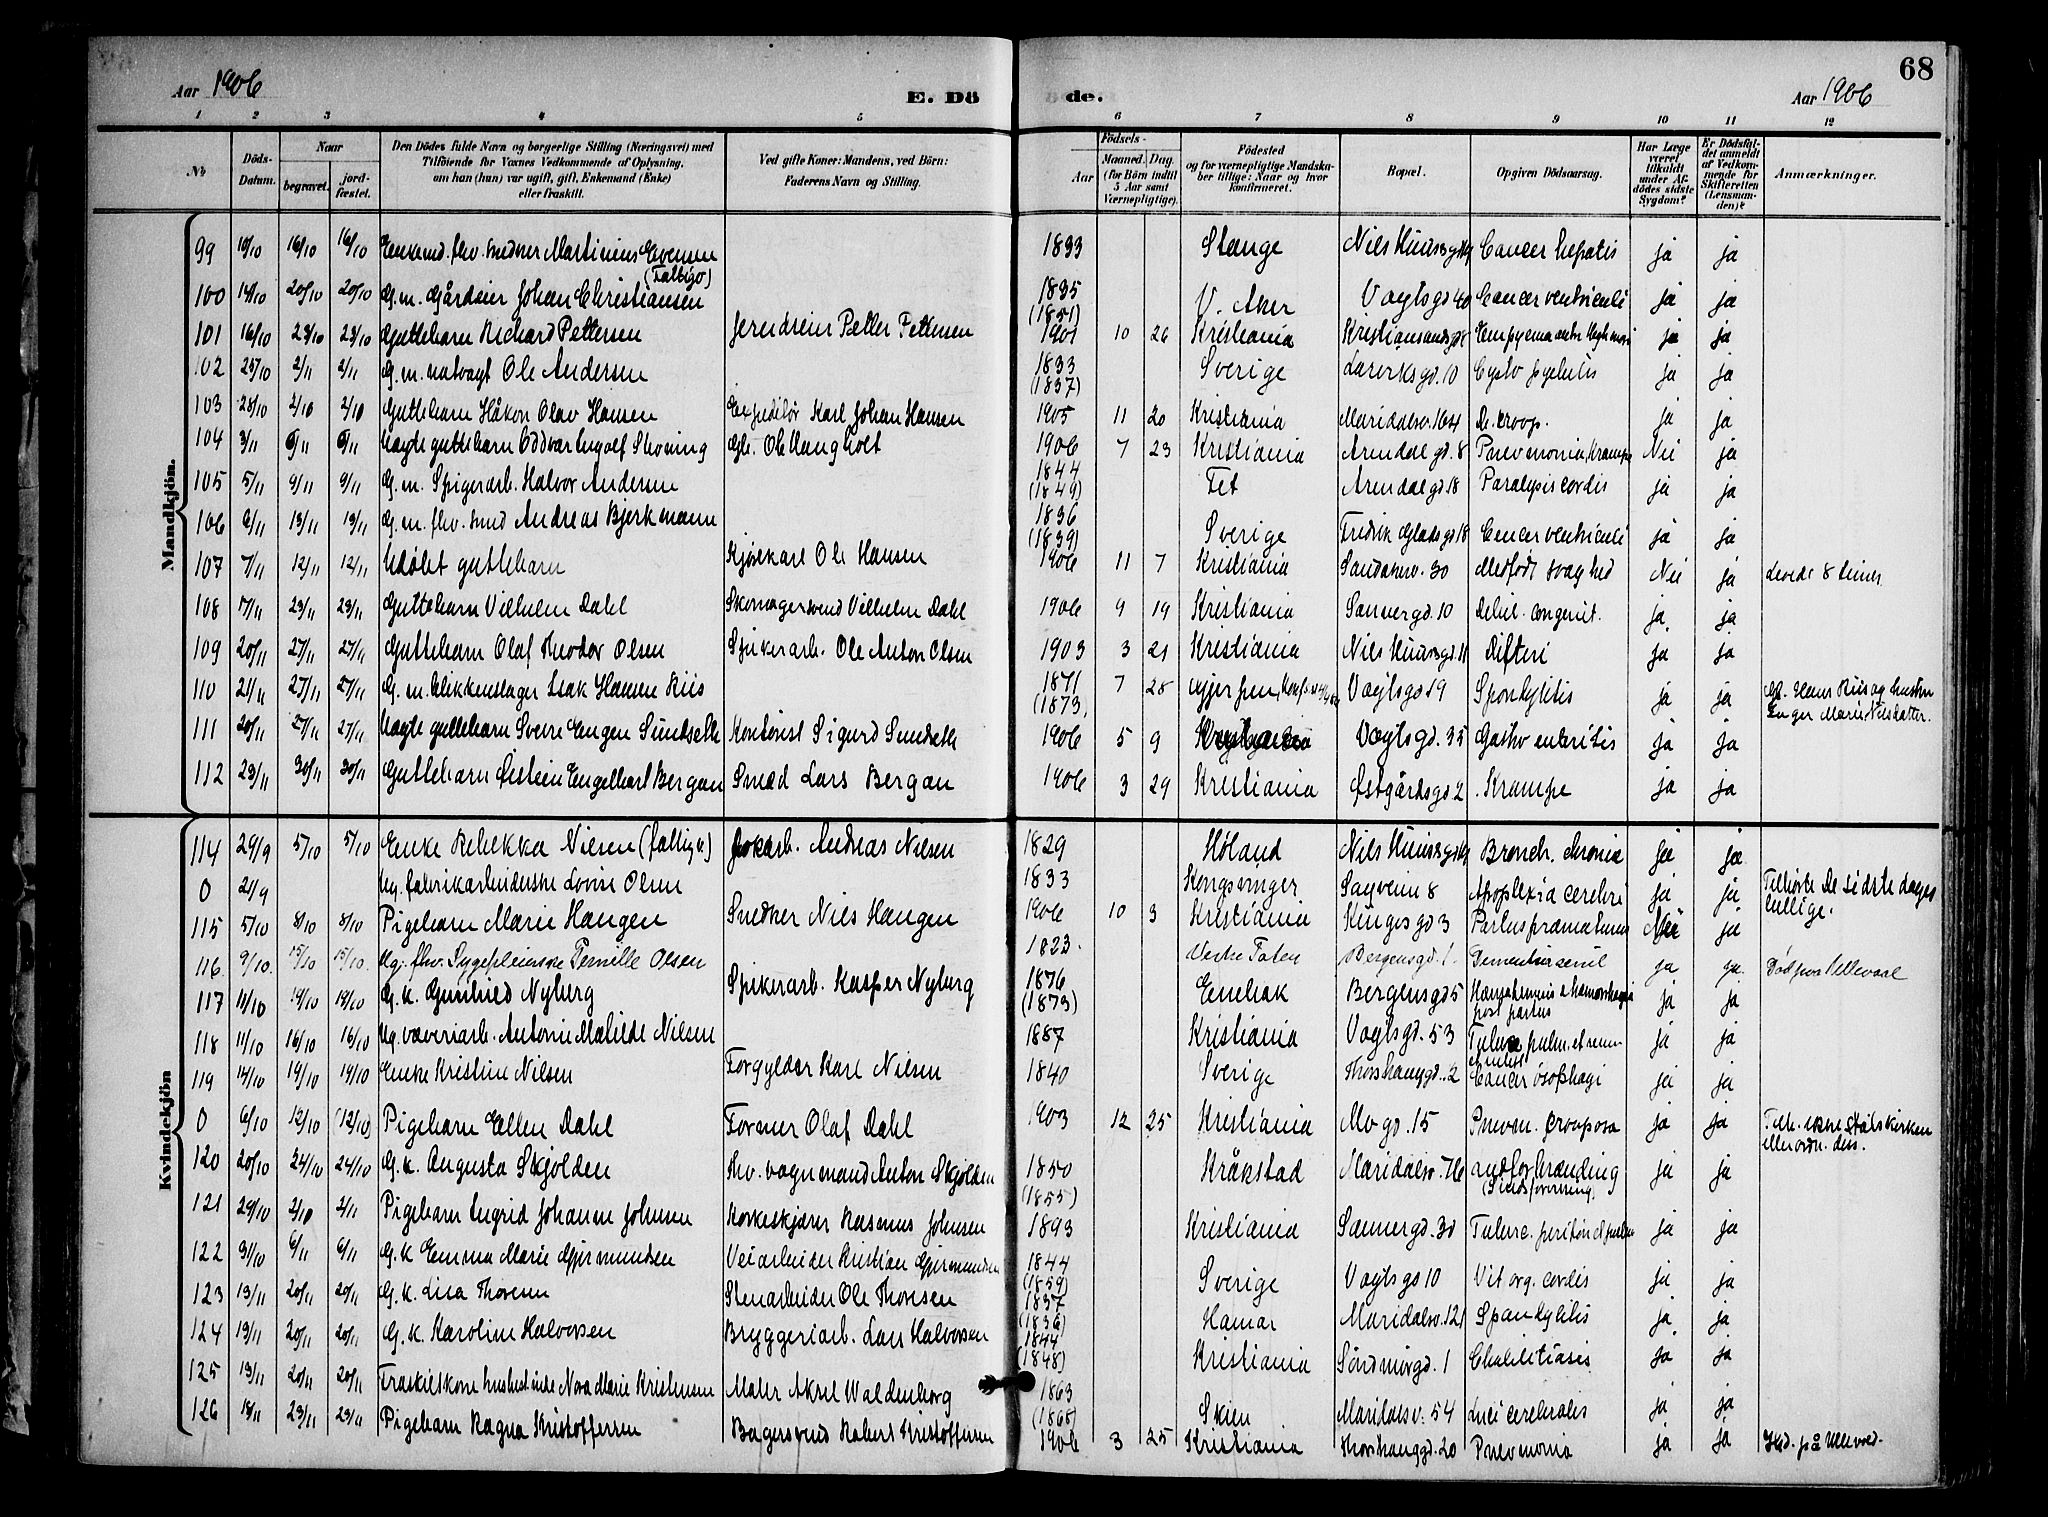 68
Aar 1906
E. Döde.
Aar 1906
1 2 3 4 5 6 7 8 9 10 11 12
No
Döds-Datum.
Naar
begravet.
jordfæstet.
Den Dödes fulde Navn og borgerlige Stilling (Næringsvei) med Tilföiende for Voxnes Vedkommende af Oplysning, om han (hun) var ugift, gift, Enkemand (Enke) eller fraskilt.
Ved gifte Koner: Mandens, ved Börn: Faderens Navn og Stilling.
Födsels-
Aar
Maaned. (for Börn indtil 5 Aar samt Værnepligtige).
Dag.
Födested og for værnepligtige Mandskaber tillige: Naar og hvor konfirmeret.
Bopæl.
Opgiven Dödsaarsag.
Har Læge været tilkaldt under Afdödes sidste Sygdom?
Er Dödsfaldet anmeldt af Vedkommende for Skifteretten (Lensmanden)?
Anmærkninger.
Mandkjön.
99 10/10 16/10 16/10 Enkemd. fhv. snedker Martinius Evensen (Fattigv) 1833 Stange Nils Huusgd Cancer hepatis ja ja
100 14/10 20/10 20/10 G.m. Gårdeier Johan Christiansen 1835 (1851) V. Aker Vogtsgd 40 Cancer ventriculi ja ja
101 16/10 23/10 23/10 Guttebarn Richard Pettersen Petter Pettersen 1901 10 26 Kristiania Kristiansandsgd 8 Empyema ja ja
102 25/10 2/11 2/11 G.m. natvagt Ole Andersen 1833 (1837) Sverige Larviksgd. 10 Cysto pyelitis ja ja
103 28/10 2/10 2/10 Guttebarn Håkon Olav Hansen Expeditør Karl Johan Hansen 1905 11 20 Kristiania Maridalsv. 164 croop. ja ja
104 3/11 6/11 6/11 Uægte guttebarn Oddvar Ingolf Ole Haugholt 1906 7 23 Kristiania Arendalgd. 8 Pnevmonia, Krampe Nei ja
105 5/11 9/11 9/11 G.m. Spigerarb. Halvor Andersen 1844 (1849) Fet Arendalgd. 18 Paralysis cordis ja ja
106 6/11 13/11 13/11 G.m. fhv. smed Andreas Bjerkmann 1836 (1839) Sverige Fredrik Gladsgd 18 Cancer ventriculi ja ja
107 7/11 12/11 12/11 Udøbt guttebarn Kjørekarl Ole Hansen 1906 11 7 Kristiania Sandakerv. 30 Medfødt svaghed Nei ja Levede 8 timer
108 17/11 23/11 23/11 Guttebarn Vilhelm Dahl Skomagersvend Vilhelm Dahl 1906 9 19 Kristiania Sannergd. 10 Debil. congenit. ja ja
109 20/11 27/11 27/11 Guttebarn Olaf Theodor Olsen Spikerarb. Ole Anton Olsen 1903 3 21 Kristiania Nils Huusgd. 11 Difteri ja ja
110 21/11 27/11 27/11 G.m. blikkenslager Isak Hansen Riis 1871 (1873) 7 28 Gjerpen, Konf. Vogtsgd 9 Spondylitis ja ja Hans Riis og hustru Inger Marie Nilsdatter.
111 20/11 27/11 27/11 Uægte guttebarn Sverre Eugen Sundseth Kontorist Sigurd Sundseth 1906 5 9 Kristiania Vogtsgd. 35 Gastro enteritis ja ja
112 23/11 30/11 30/11 Guttebarn Øistein Engelhart Bergan Smed Lars Bergan 1906 3 29 Kristiania Østgårdsgd 2 Krampe ja ja
Kvindekjön
114 29/9 5/10 5/10 Enke Rebekka Nilsen (fattigv.) Andreas Nilsen 1829 Høland Nils Huusgd Bronch. chronica ja ja
0 21/9 Ug. fabrikarbeiderske Lovise Olsen 1833 Kongsvinger Sagveien 8 Apoplexia cerebri ja ja Tilhørte De sidste dages hellige.
115 5/10 8/10 8/10 Pigebarn Marie Haugen Snedker Nils Haugen 1906 10 3 Kristiania Ringsgd 3 Partus præmaturus Nei ja
116. 9/10. 15/10 15/10. Ug. fhv. Sygepleierske Pernille Olsen 1823. Vestre Toten Bergensgd. 1. Dementia senil ja ja. Død paa Ullevaal
117 11/10 19/10 19/10 G.k. Gunhild Nyberg Spikerarb. Kasper Nyberg 1876 (1873) Enebak Bergensgd 5 post partus ja ja
118 11/10 16/10 16/10 Ug. væveriarb. Antonie Matilde Nilsen 1887 Kristiania Vogtsgd. 53 Tuberc. pulm. et ja ja
119 14/10 19/10 19/10 Enke Kristine Nilsen Forgylder Karl Nilsen 1840 Sverige Thorshauggd. 2 Cancer øsophagi ja ja
0 6/10 12/10 (12/10) Pigebarn Ellen Dahl Former Olaf Dahl 1903 12 25 Kristiania Mogd. 15 Pnevm. crouposa ja ja Tilh. ikke statskirken
120 20/10 24/10 24/10 G.k. Augusta Skjolden Fhv. vognmand Anton Skjolden 1850 (1855) Kråkstad Maridalsv. 76 ja ja
121 29/10 2/10 2/11 Pigebarn Ingrid Johanne Johnsen Korkeskjærer Rasmus Johnsen 1893 Kristiania Sannergd. 30 Tuberc. ja ja
122 31/10 6/11 6/11 G.k Emma Marie Gjermundsen Veiarbeider Kristian Gjermundsen 1844 (1859) Sverige Vogtsgd 10 Vit. org. cordis ja ja
123 13/11 20/11 20/11 G.k. Lisa Thoresen Stenarbeider Ole Thoresen 1837 (1836) Hamar Maridalsv. 121 Spondylitis ja ja
124 13/11 20/11 20/11 G.k. Karoline Halvorsen Bryggeriarb. Lars Halvorsen 1844 (1848) Kristiania Søndmørgd. 1 ja ja
125 13/11 20/11 20/11 Fraskilt kone Nora Marie Kristensen Maler Aksel Waldenborg 1863 (1868) Skien Maridalsv. 54 cerebralis ja ja
126 18/11 23/11 23/11 Pigebarn Ragna Kristoffersen Bagersvend Robert Kristoffersen 1906 3 25 Kristiania Thorshauggd. 20 Pnevmonia ja ja på Ullevål.